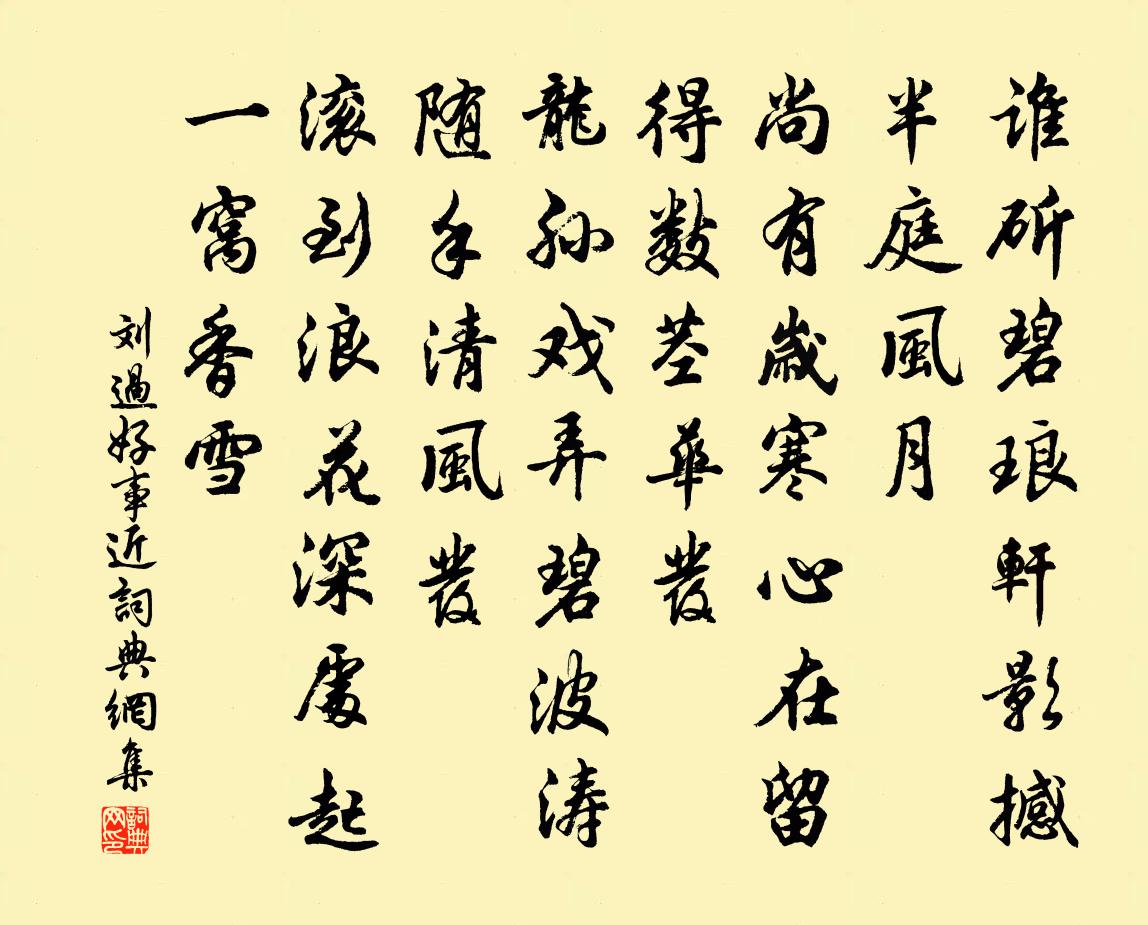 谁斫碧琅軒影撼
半庭風月
尚有歲寒心在留
得數莖華發
龍孫戏弄碧波涛
随手清風發
滚到浪花深處起
一窝香雪
刘過好事近詞典網集
詞典
网印